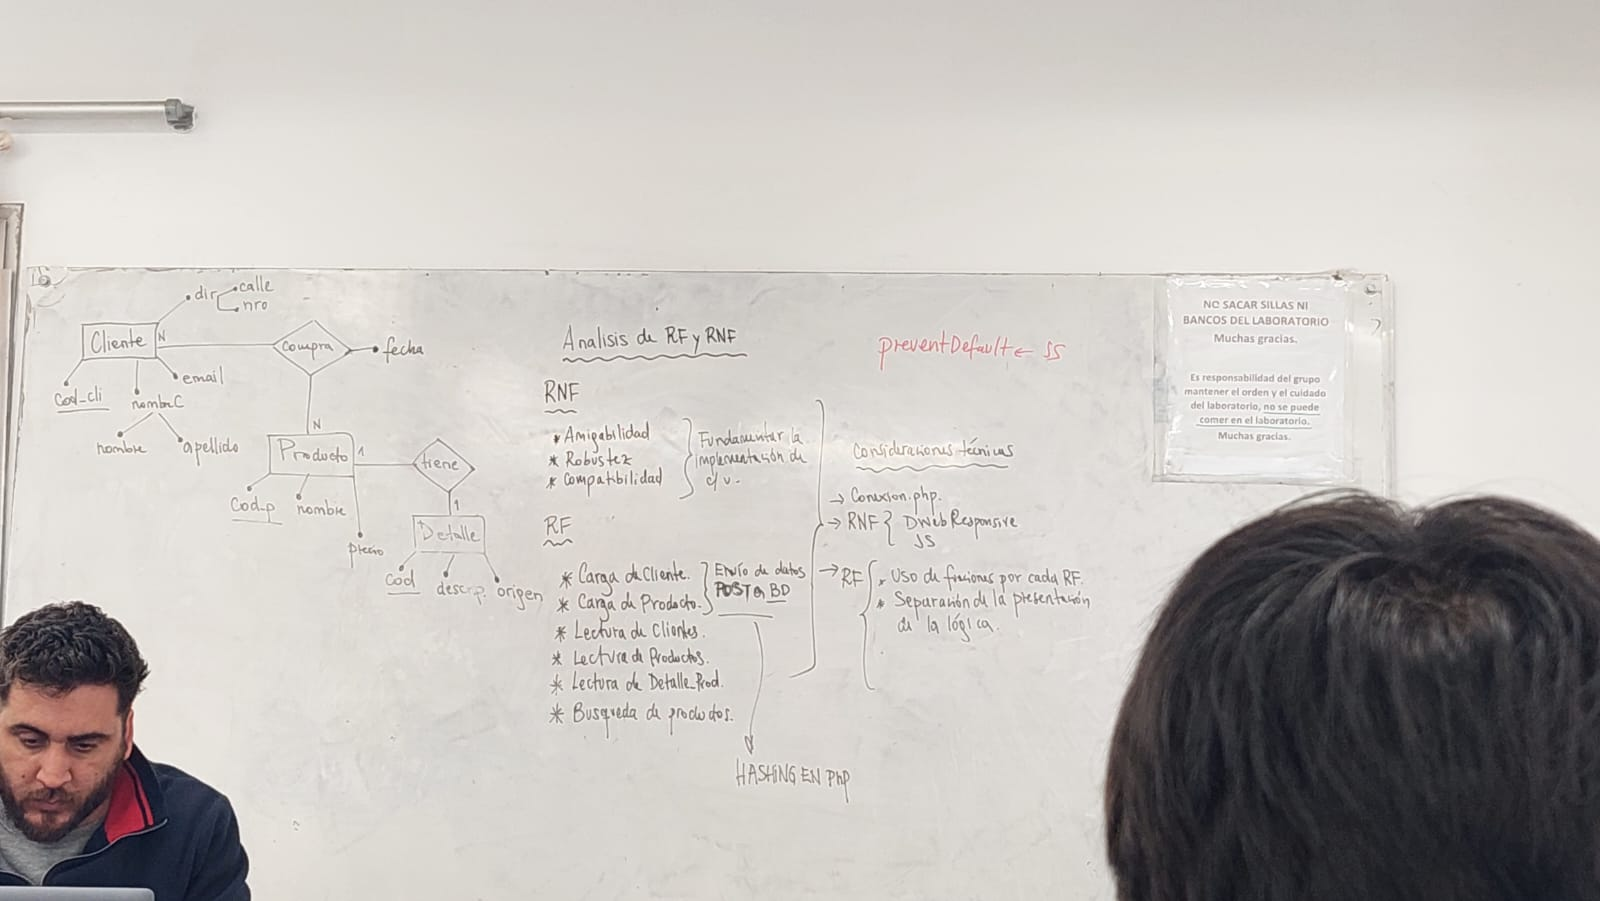 dir
calle
nro
Cliente
N
Compra
fecha
Cod_cli
nombreC
email
nombre
apellido
N
Producto
1
tiene
Cod_p
nombre
precio
1
Detalle
cod
descrp.
origen
Analisis de RF y RNF
RNF
* Amigabilidad
* Robustez
* Compatibilidad
Fundamentar la
implementación de
c/u.
RF
* Carga de Cliente.
* Carga de Producto.
* Lectura de Clientes.
* Lectura de Productos.
* Lectura de Detalle_Prod.
* Busqueda de productos.
Envío de datos
POST a BD
HASHING EN PhP
preventDefault ← JS
Consideraciones técnicas
→ Conexion.php.
→ RNF { DWebResponsive
JS
→ RF { * Uso de funciones por cada RF.
* Separación de la presentación
de la lógica.
NO SACAR SILLAS NI
BANCOS DEL LABORATORIO
Muchas gracias.
Es responsabilidad del grupo
mantener el orden y el cuidado
del laboratorio, no se puede
comer en el laboratorio.
Muchas gracias.